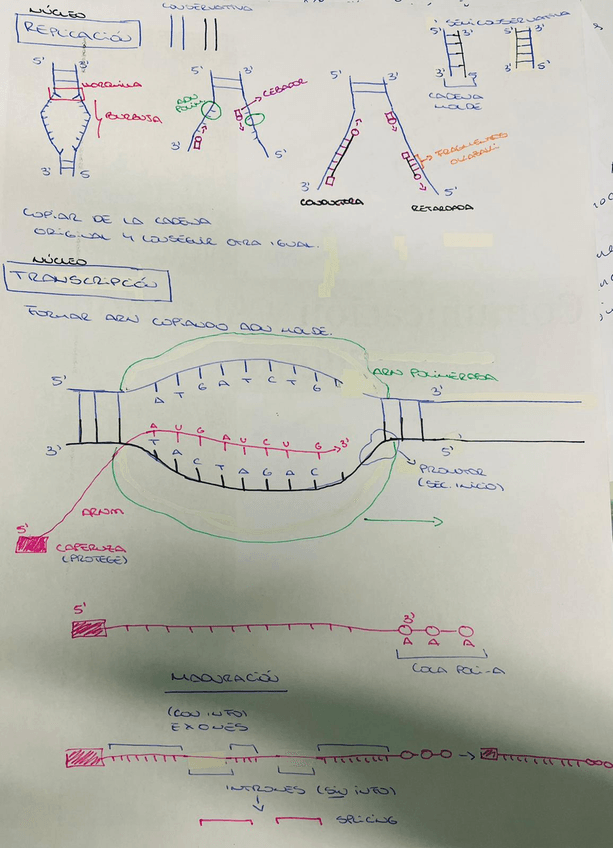 NÚCLEO
REPLICACIÓN
CONSERVATIVA
SEMICONSERVATIVA
5' 3'
3' 5'
CADENA
MOLDE
5' 3'
HORQUILLA
BURBUJA
3' 5
5' 3'
ADN
POLIM.
CEBADOR
3' 5'
5' 3'
FRAGMENTO
OKAZAKI
3' 5'
CONDUCTORA
RETARDADA
COPIAR DE LA CADENA
ORIGINAL Y CONSEGUIR OTRA IGUAL.
NÚCLEO
TRANSCRIPCIÓN
FORMAR ARN COPIANDO ADN MOLDE.
ARN POLIMERASA
5' 3'
A T G A T C T G
A U G A U C U G 3'
T A C T A G A C
3' 5'
PROMOTOR
(SEC. INICIO)
ARNM
5'
CAPERUZA
(PROTEGE)
5' 3'
A A A
COLA POLI-A
MADURACIÓN
(CON INFO)
EXONES
INTRONES (SIN INFO)
SPLICING